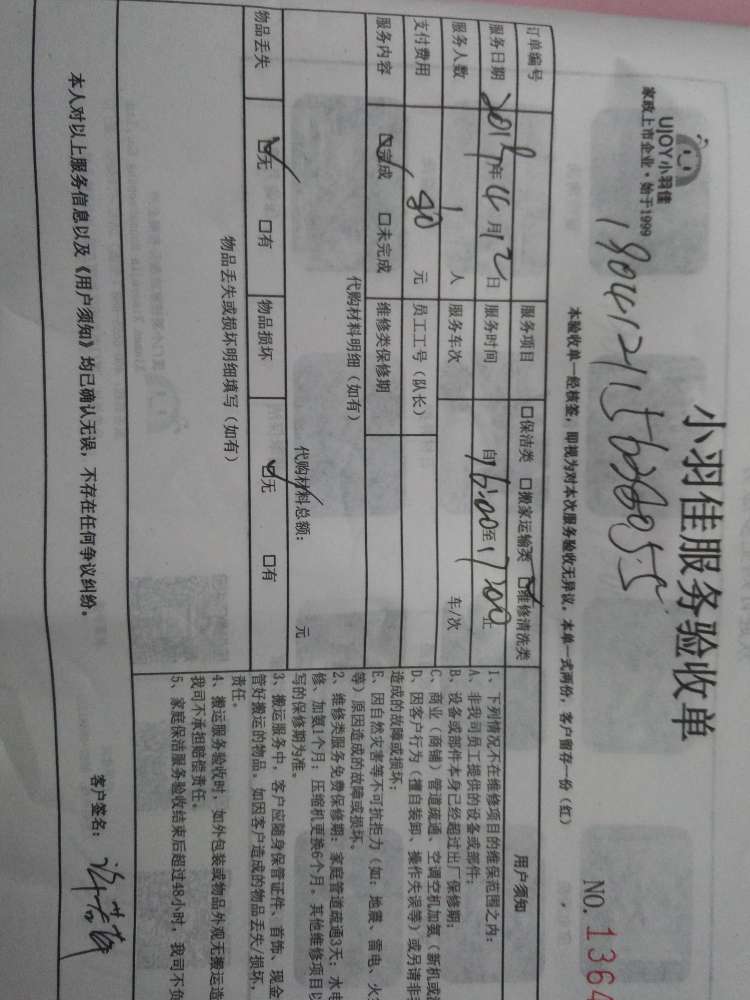 UJOY小羽佳
家政上市企业·始于1999
小羽佳服务验收单
NO.1364
本验收单一经核签，即视为对本次服务验收无异议，本单一式两份，客户留存一份（红）
订单编号
服务项目 □保洁类 □搬家运输类 ☑维修清洗类
服务日期 2018年4月12日 服务时间 自16:00至17:00止
服务人数 1人 服务车次 车/次
支付费用 80元 员工工号（队长）
服务内容 ☑完成 □未完成 维修类保修期
代购材料明细（如有）
代购材料总额： 元
物品丢失 ☑无 □有 物品损坏 ☑无 □有
物品丢失或损坏明细填写（如有）
用户须知
1、下列情况不在维修项目的维保范围之内：
A、非我司员工提供的设备或部件；
B、设备或部件本身已经超过出厂保修期；
C、商业（商铺）管道疏通、空调空机加氨（新机或
D、因客户行为（擅自装卸、操作失误等）或另请非
造成的故障或损坏；
E、因自然灾害等不可抗拒力（如：地震、雷电、火
等）原因造成的故障或损坏。
2、维修类服务免费保修期：家庭管道疏通3天；水电
修、加氨1个月；压缩机更换6个月。其他维修项目以
写的保修期为准。
3、搬运服务中，客户应随身保管证件、首饰、现金
管好搬运的物品。如因客户造成的物品丢失/损坏，
责任。
4、搬运服务验收时，如外包装或物品外观无搬运造
我司不承担赔偿责任。
5、家庭保洁服务验收结束后超过48小时，我司不负
本人对以上服务信息以及《用户须知》均已确认无误，不存在任何争议纠纷。
客户签名：